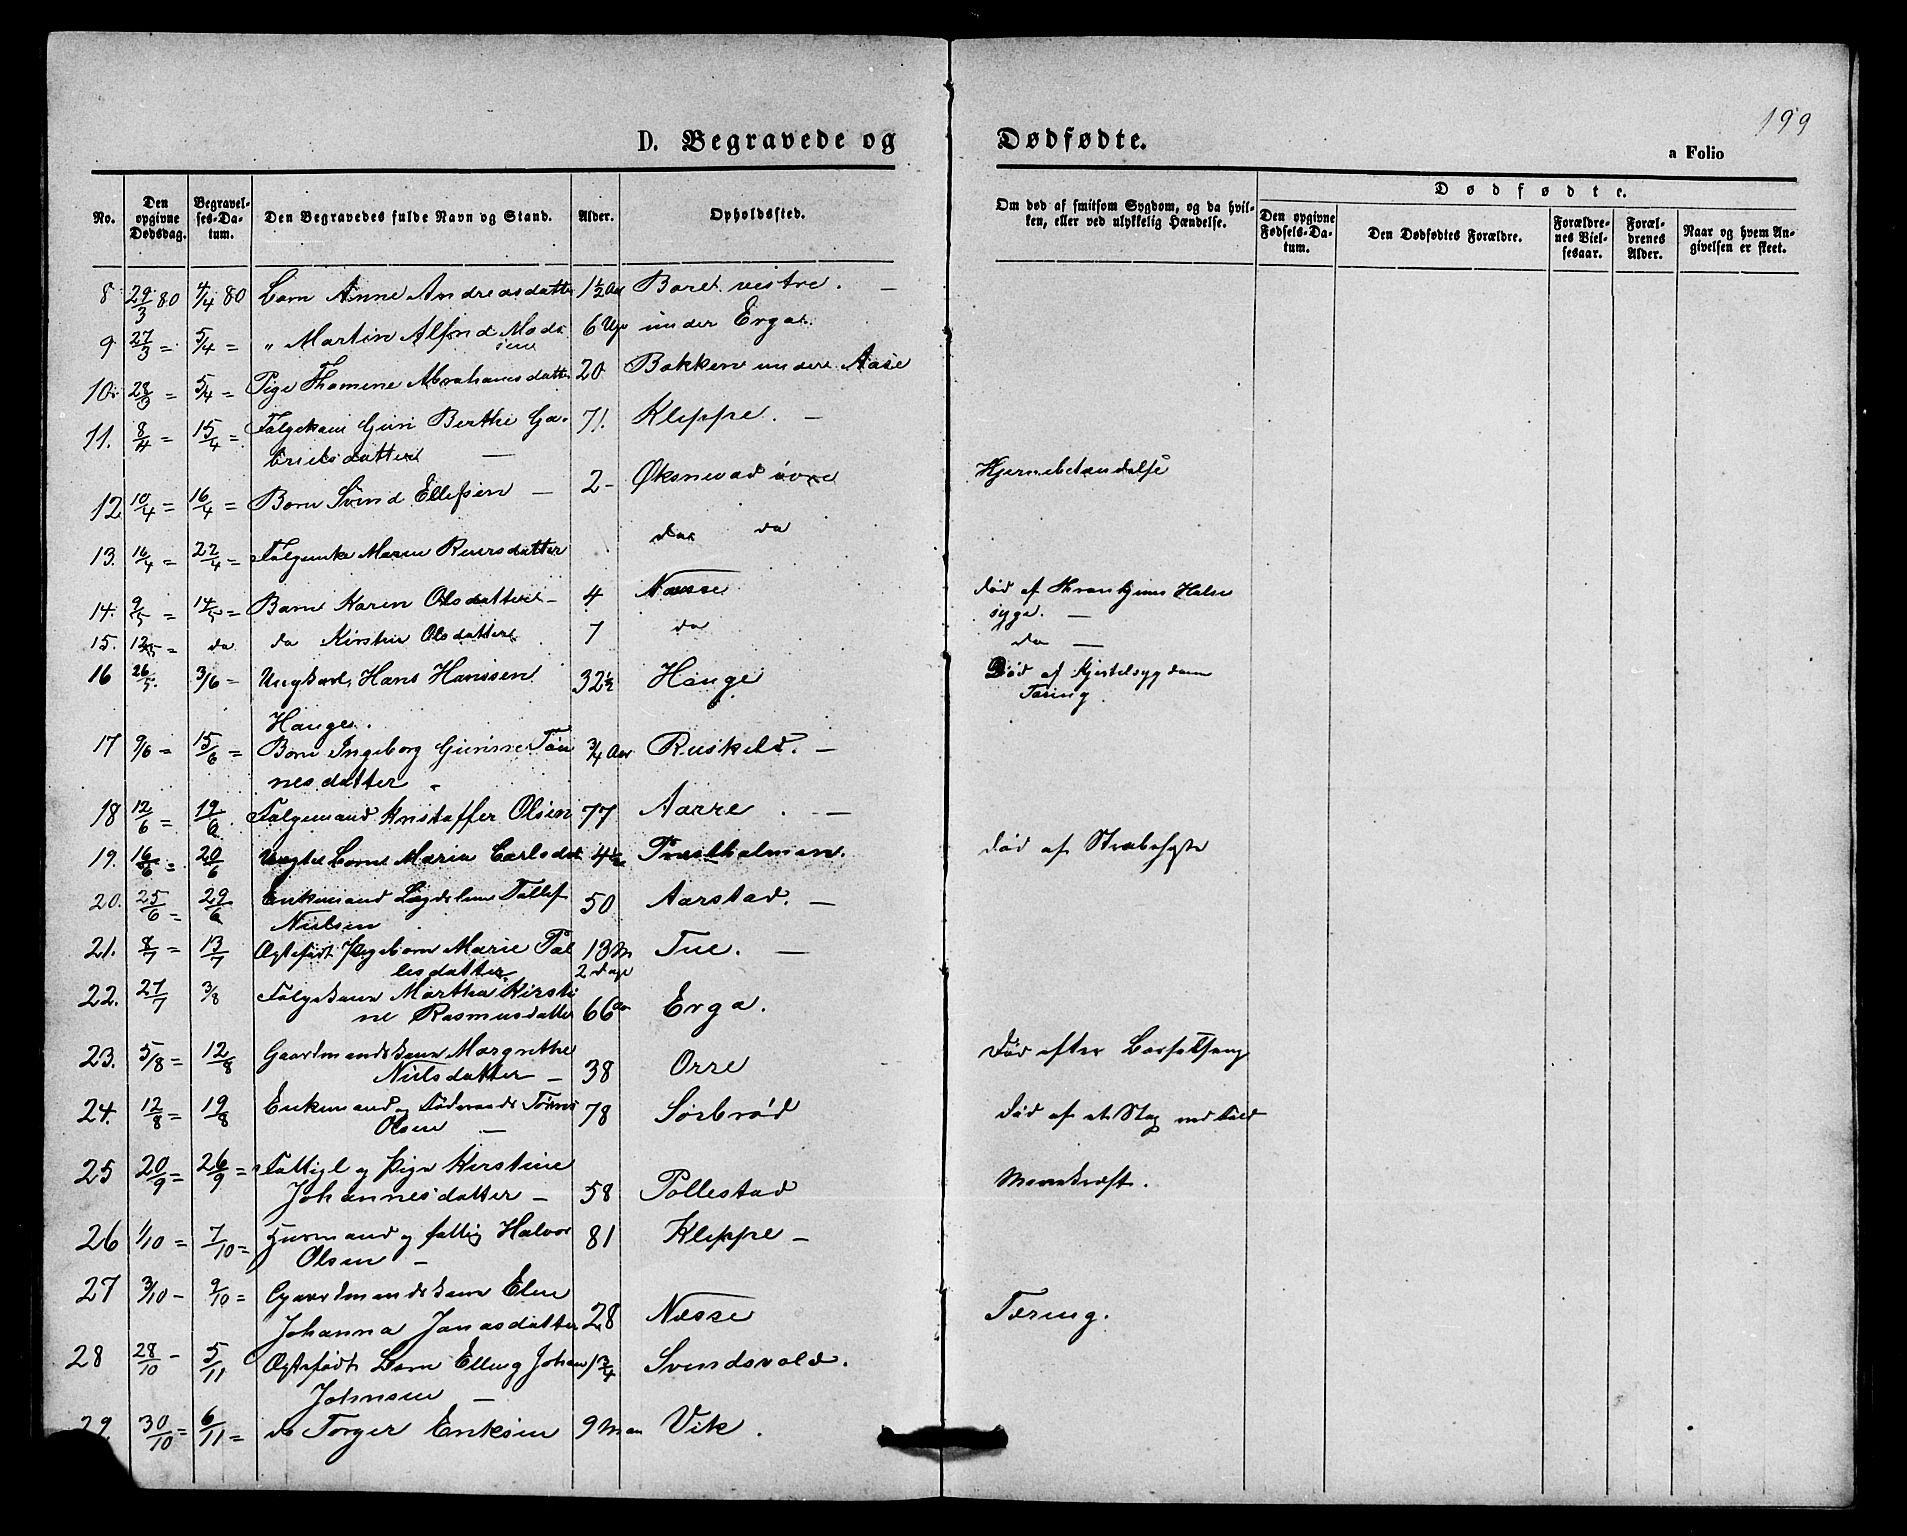 199
D. Begravede og Dødfødte.
a Folio
No.
Den opgivne Dødsdag.
Begravelses-Datum.
Den Begravedes fulde Navn og Stand.
Alder.
Opholdssted.
Om død af smitsom Sygdom, og da hvilken, eller ved ulykkelig Hændelse.
Dødfødte.
Den opgivne Fødsels-Datum.
Den Dødfødtes Forældre.
Forældrenes Vielsesaar.
Forældrenes Alder.
Naar og hvem Angivelsen er skeet.
8 29/3 80 4/4 80 Barn Anne Andreasdatter 1½ Aar Boret vestre. —
9 27/3 = 5/4 = „ Martin Alfred Mads
sen 6 Uger under Erga.
10. 28/3 = 5/4 = Pige Thomine Abrahamsdatter 20 Bakken under Aase
11. 8/4 = 15/4 = Følgekone Guri Berthe Ga-
brielsdatter — 71. Kleppe. —
12 10/4 = 16/4 = Barn Svend Ellefsen — 2 - Øksnevad øvre Hjernebetændelse
13. 16/4 = 22/4 = Følgeenke Maren Reiersdatter do do
14. 9/5 = 14/5 = Barn Karen Olsdatter — 4 Næsse død af Halse
syge. —
15. 12/5 = do do Kirstine Olsdatter 7 do do —
16 26/5. 3/6 = Ungkarl Hans Hanssen 32½ Hauge Død af Kjertelsygdom
Hauge. Tæring
17 9/6 = 15/6 = Barn Ingeborg Gurine Tøn
nesdatter - ¾ Aar Ruskeld. —
18 12/6 = 19/6 Følgemand Kristoffer Olsen 77 Aarre . —
19. 16/6 = 20/6 Uægte Barn Maria Carlsdat 4½ Præstholmen. død af Strubehoste
20. 25/6 = 29/6 Enkemand Lægdslem Tollef
Nielsen . 50 Aarstad. —
21. 8/7 = 13/7 Ægtefødt Pigebarn Marie Tol
lesdatter 13 M
2 Dage Tue. —
22. 27/7 3/8 Følgekone Martha Kirsti
ne Rasmusdatter 66 Erga.
23. 5/8 = 12/8 Gaardmandskone Margrethe
Nielsdatter — 38 Orre Død efter Barselseng
24. 12/8 = 19/8 Enkemand og Føderaads Tønnes
Olsen — 78 Sørbrød Død af et Slag ved Fald
25 20/9 = 26/9 = Fattigl og Pige Kirstine
Johannesdatter — 58 Pollestad
26 1/10 = 7/10 = Huusmand og fattig Halvor
Olsen — 81 Kleppe —
27 3/10 - 9/10 = Gaardmandskone Elen
Johanna Jonasdatter 28 Næsse Tæring.
28 28/10 - 5/11 Ægtefødt Barn Elling Johan
Johnsen — 1¾ Svendsvold.
29. 30/10 = 6/11 = do Torger Eriksen 9 Maan Vik .